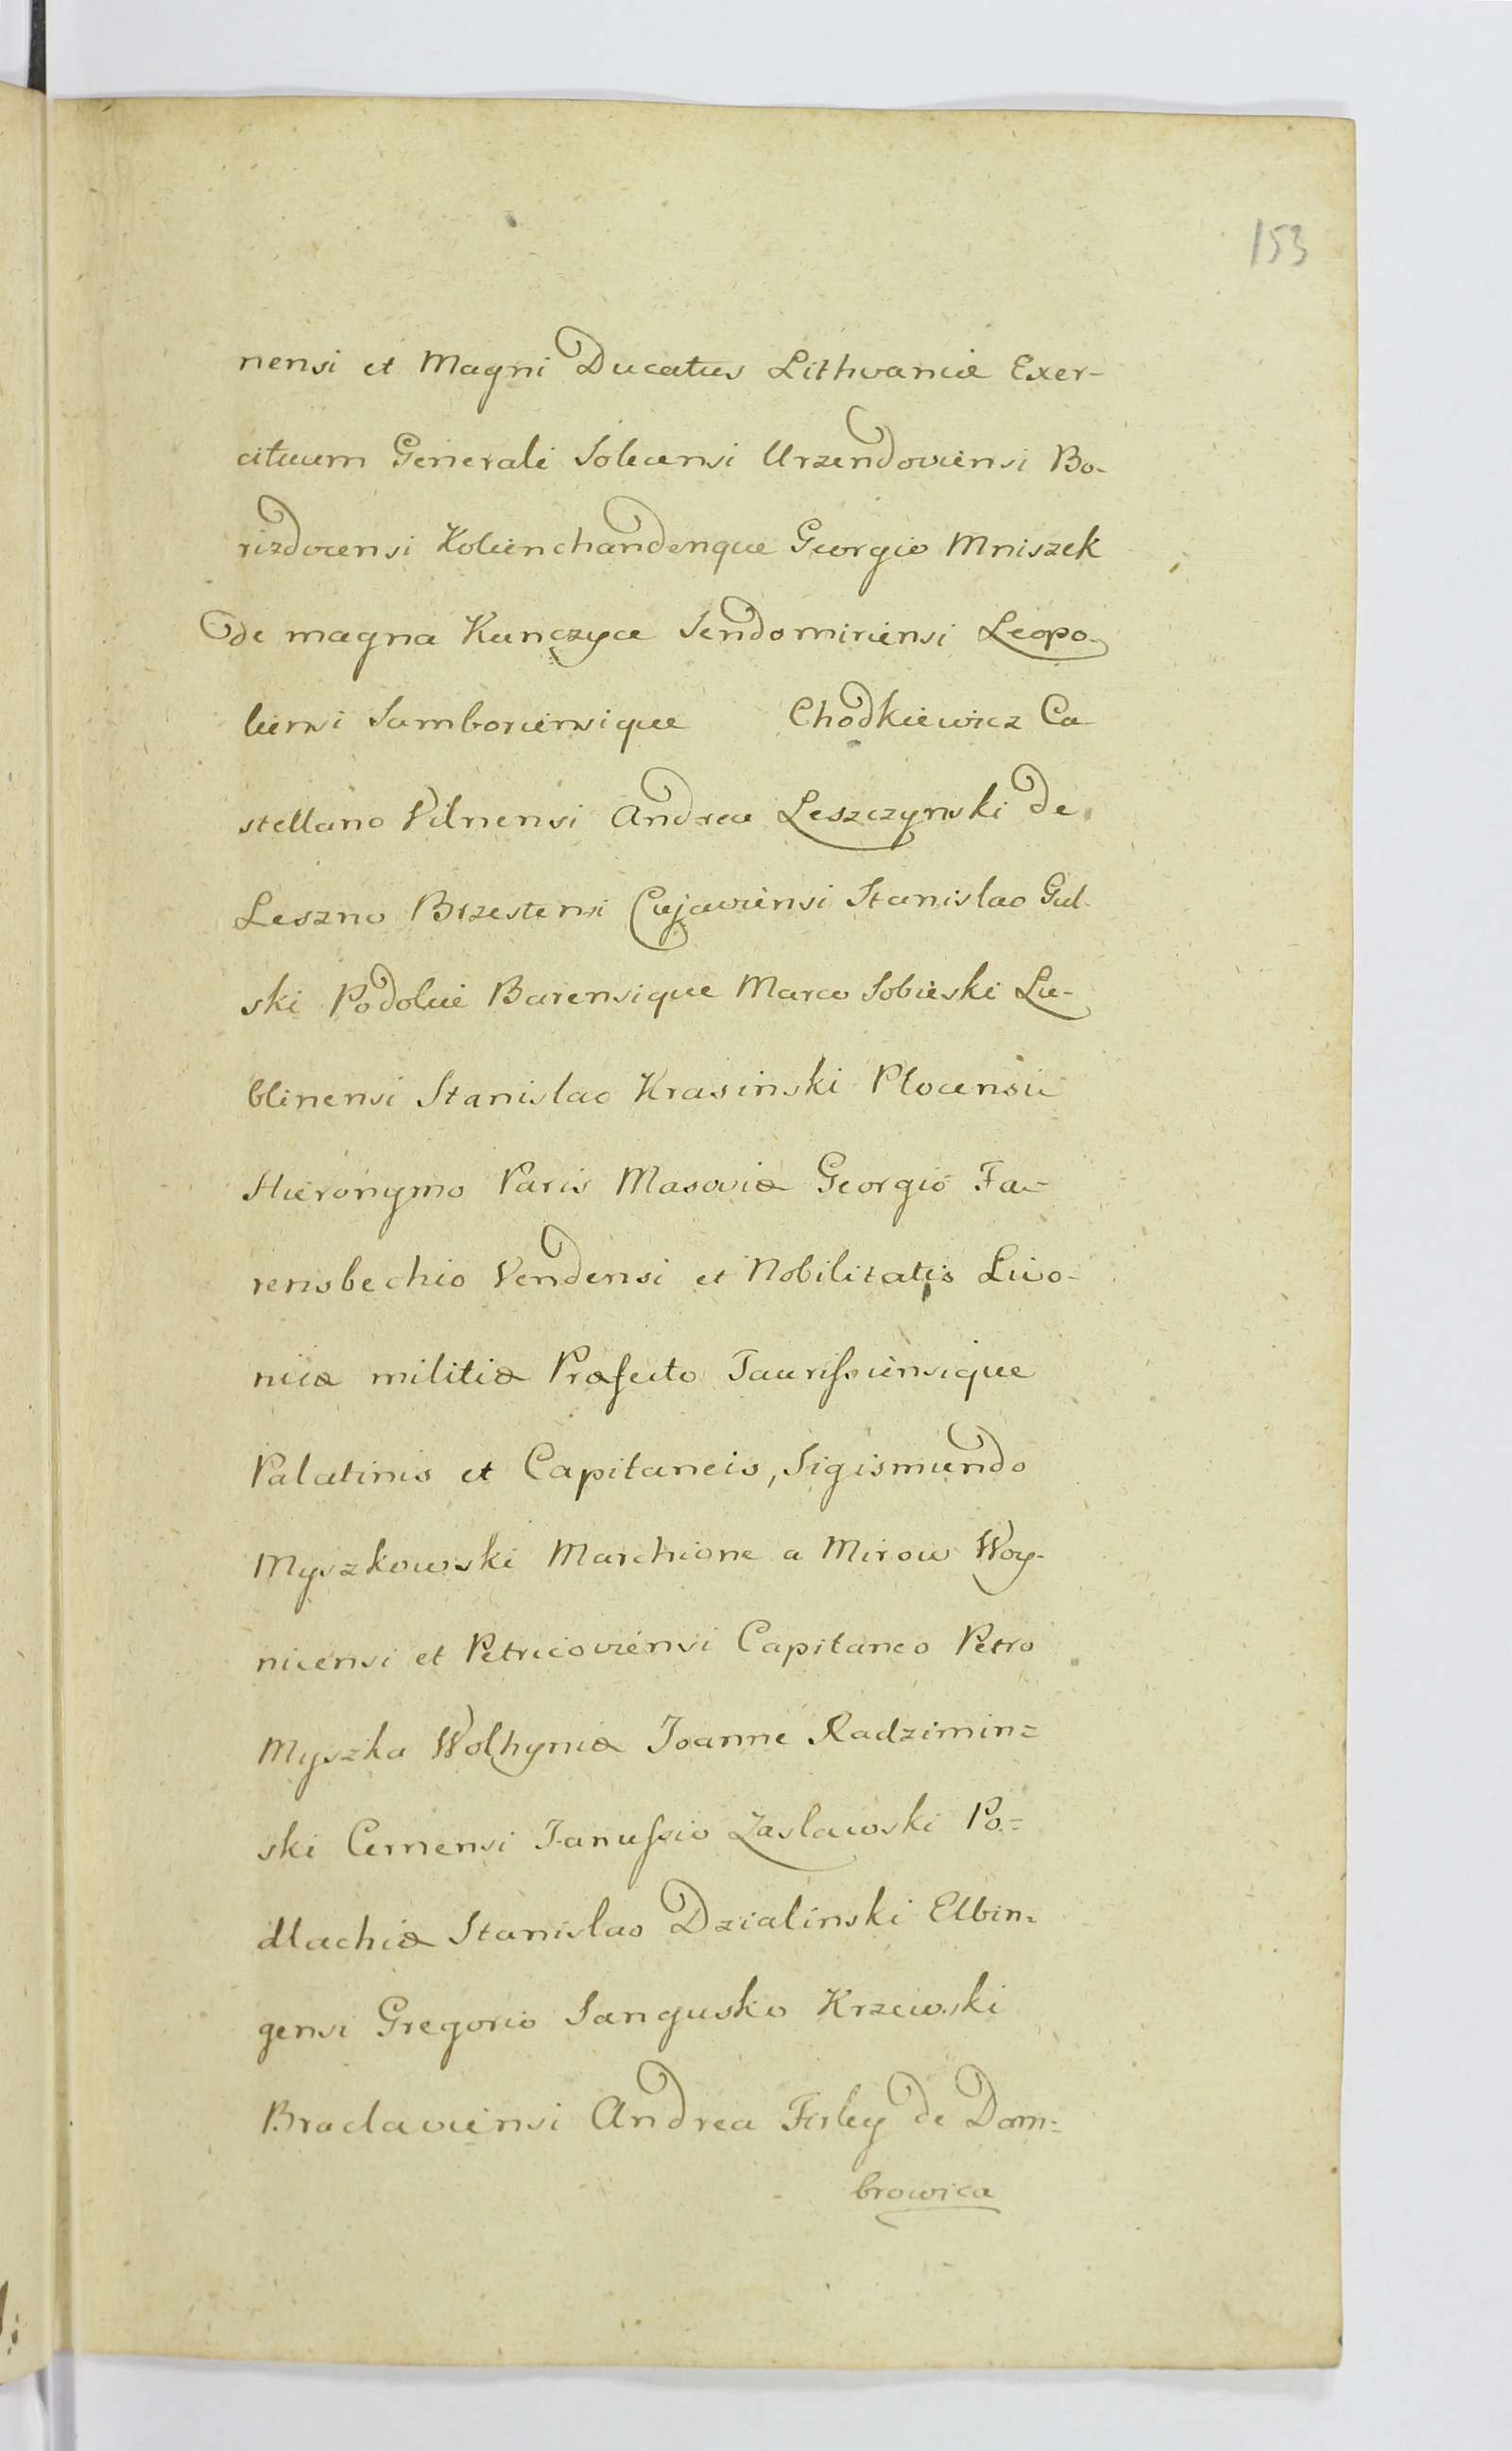 153
nensi et Magni Ducatus Lithvaniæ Exer-
cituum Generali Solecensi Urzendoviensi Bo-
risdviensi Kolienchandenque Georgio Mniszek
de magna Kunczyce Sendomiriensi Leopo-
liensi Samboriensique Chodkiewicz Ca
stellano Vilnensi Andrea Leszczynski de
Leszno Brzestensi Cujaviensi Stanislao Gul-
ski Podoliæ Barensique Marco Sobieski Lu-
blinensi Stanislao Krasinski Plocensii
Hieronymo Paris Masoviæ Georgio Fa-
rensbechio Vendensi et Nobilitatis Livo-
niiæ militiæ Præfecto Taurissiensique
Palatinis et Capitaneis, Sigismundo
Myszkowski Marchione a Mirow Woy-
nicensi et Petricoviensi Capitaneo Petro
Myszka Wolhyniæ Joanne Radzimin=
ski Cernensi Janussio Zaslawski Po=
dlachiæ Stanislao Dzialinski Elbin=
gensi Gregorio Sangusko Krzewski
Braclaviensi Andrea Firley de Dom=
browica